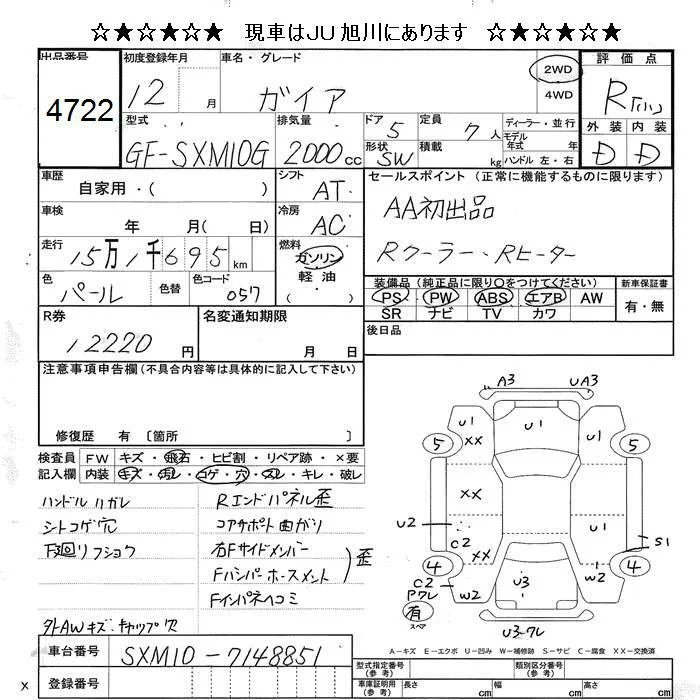 ☆★☆★☆★ 現車はJU旭川にあります ☆★☆★☆★
出品番号
4722
初度登録年月
12 月
車名・グレード
ガイア
2WD
4WD
評価点
R
外装 内装
D D
型式
GF-SXM10G
排気量
2000cc
ドア 5
形状 SW
定員 7人
積載 kg
ディーラー・並行
モデル
年式 年
ハンドル 左・右
車歴
自家用・( )
シフト
AT
セールスポイント(正常に機能するものに限ります)
AA初出品
Rクーラー・Rヒーター
車検
年 月( 日)
冷房
AC
走行
15万1千695km
燃料
ガソリン
軽油
( )
色
パール
色替
色コード
057
装備品(純正品に限り○をつけてください)
PS PW ABS エアB AW
SR ナビ TV カワ
新車保証書
有・無
R券
12220円
名変通知期限
月 日
後日品
注意事項申告欄(不具合内容等は具体的に記入して下さい)
修復歴 有〔箇所 〕
検査員 FW キズ・飛石・ヒビ割・リペア跡・×要
記入欄 内装 キズ・汚レ・コゲ・穴・スレ・キレ・破レ
ハンドルリガレ
シトコゲ穴
下廻リフショク
外AWキズ・キャップ欠
Rエンドパネル歪
コアサポート曲ガリ
右Fサイドメンバー
Fバンパーホースメント
歪
Fインパネヘコミ
A3 UA3
U1 U1 U1
XX
5 5
XX
U2 C2 U1 S1
XX
4 4
C2 W2 U3 W2
Pワレ
有
スペア
U3・ワレ
A-キズ E-エクボ U-凹み W-補修跡 S-サビ C-腐食 XX-交換済
車台番号
SXM10-7148851
登録番号
型式指定番号
(参考)
類別区分番号
(参考)
車庫証明用
(参考)
長さ cm 幅 cm 高さ cm
X